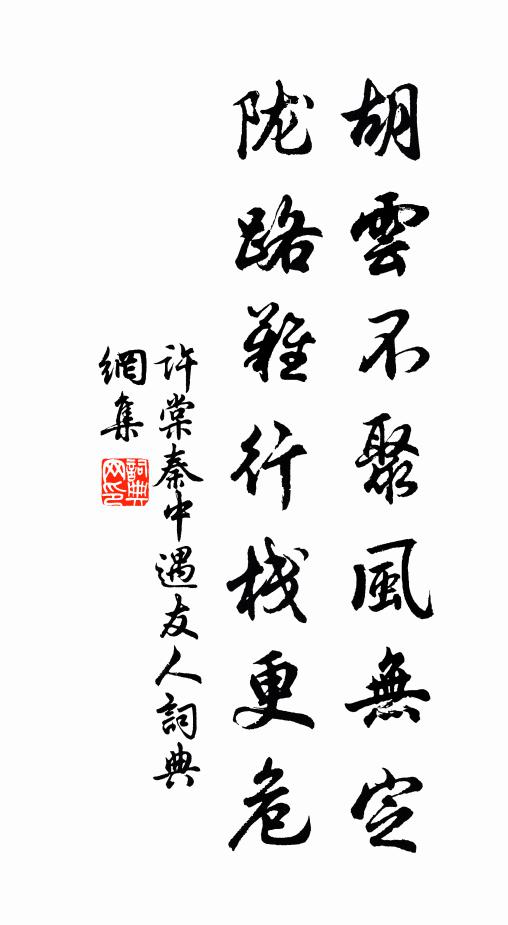 胡雲不聚風無定
陇路難行栈更危
许棠秦中遇友人詞典
網集
詞典
网印